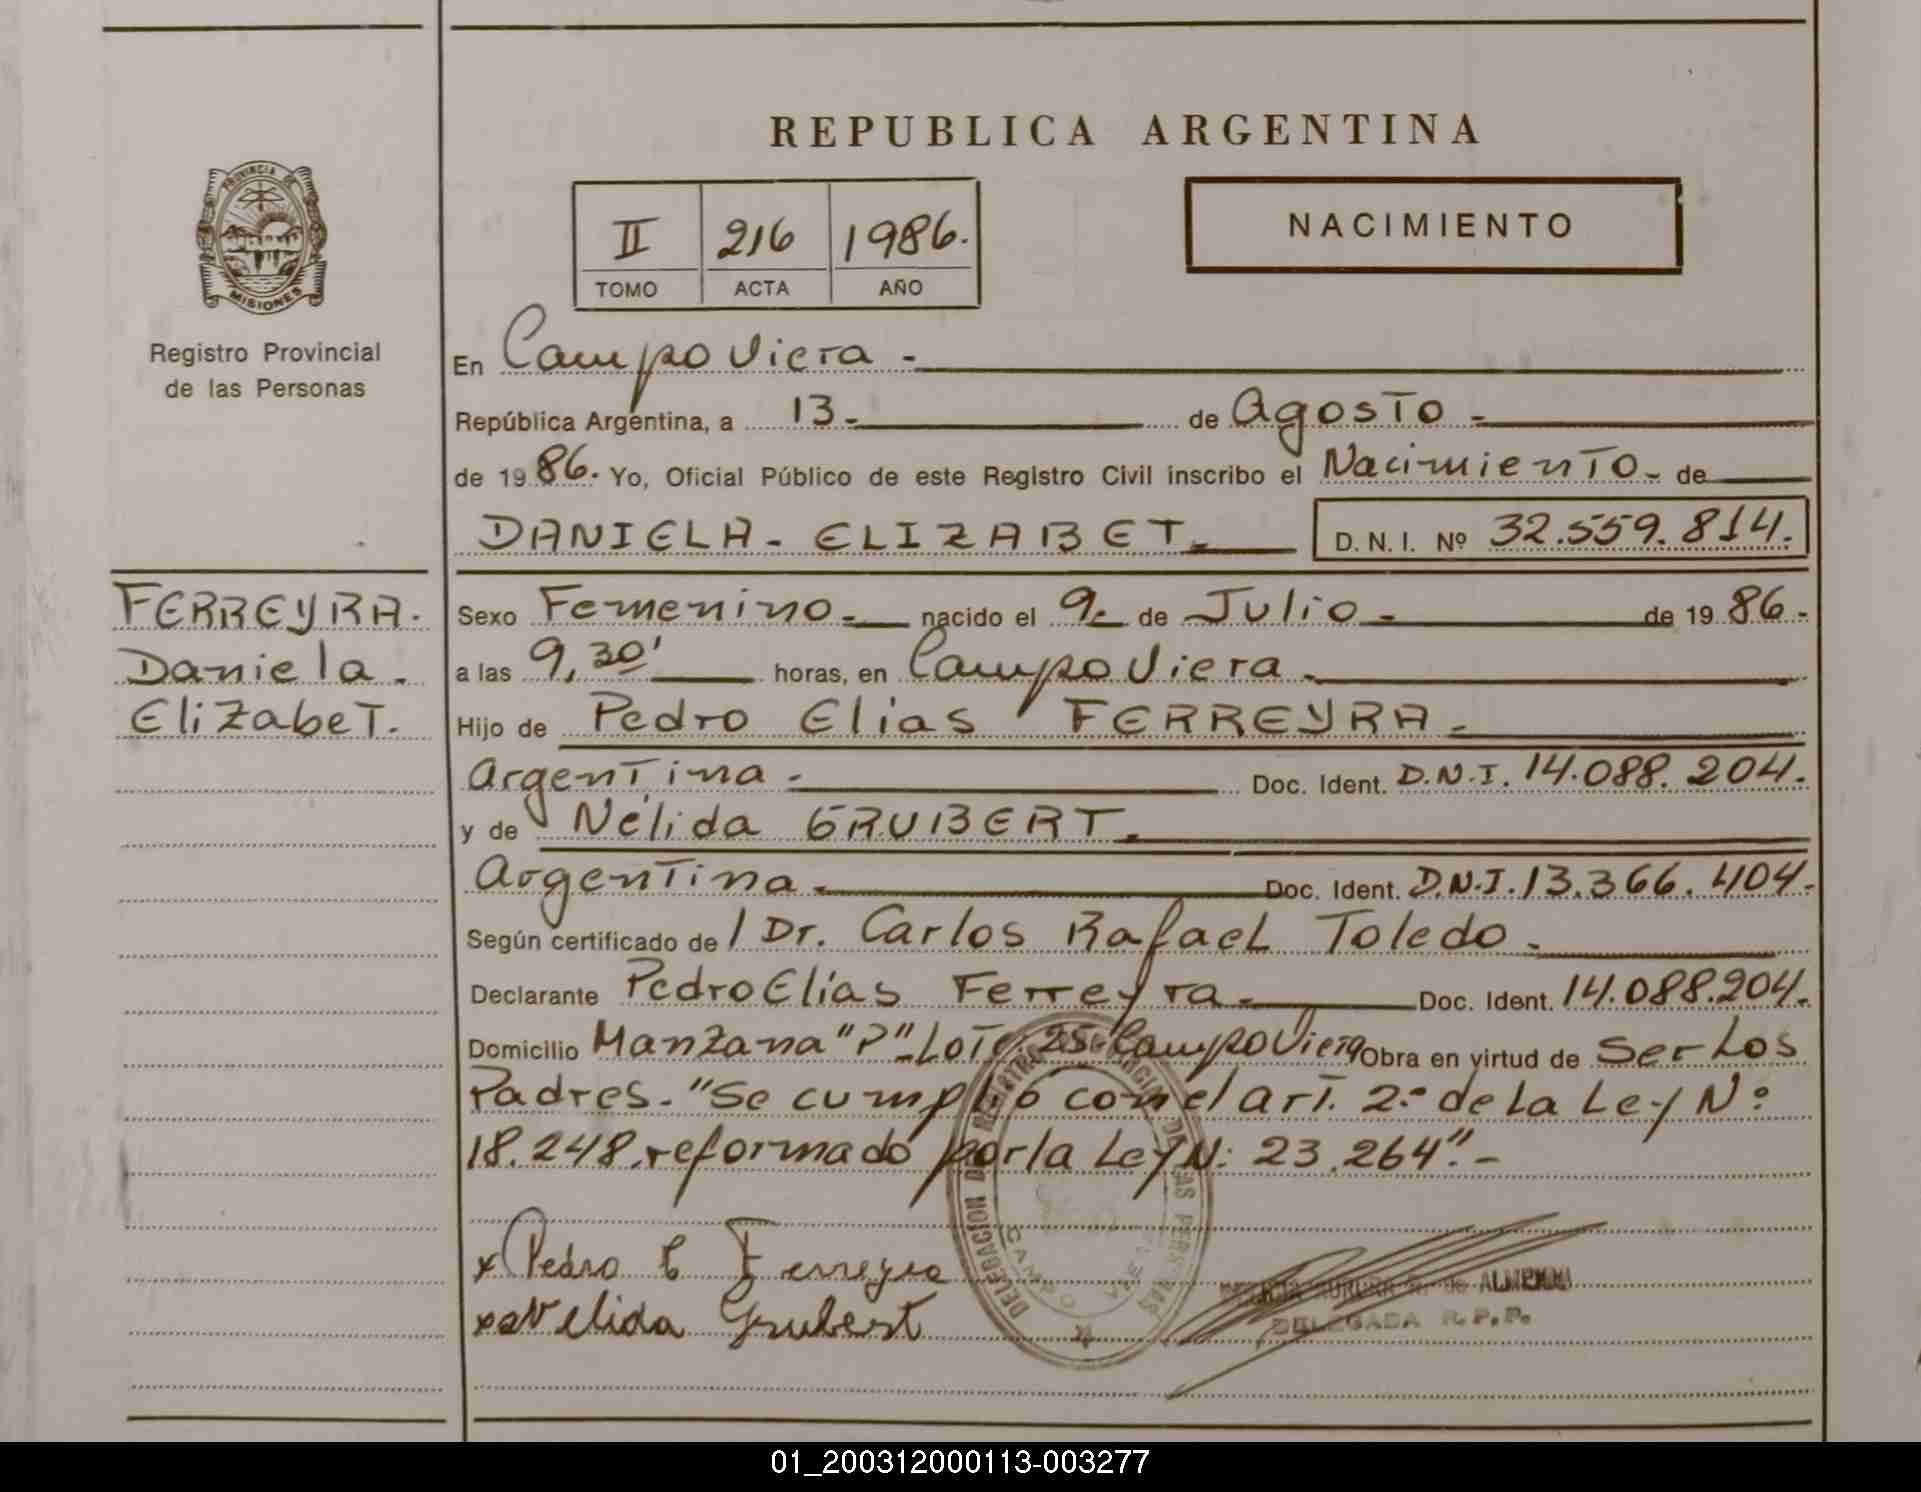 REPUBLICA ARGENTINA
PROVINCIA DE
MISIONES
Registro Provincial
de las Personas
II 216 1986.
TOMO ACTA AÑO
NACIMIENTO
En Campo Viera -
República Argentina, a 13.- de Agosto -
de 1986. Yo, Oficial Público de este Registro Civil inscribo el Nacimiento - de
DANIELA - ELIZABET. D. N. I. Nº 32.559.814.
FERREYRA.
Daniela.
Elizabet.
Sexo Femenino.- nacido el 9.- de Julio - de 1986.-
a las 9,30' horas, en Campo Viera.
Hijo de Pedro Elias FERREYRA.-
Argentina.- Doc. Ident. D.N.I. 14.088.204.
y de Nélida GRUBERT.
Argentina.- Doc. Ident. D.N.I. 13.366.404.-
Según certificado de / Dr. Carlos Rafael Toledo.
Declarante Pedro Elías Ferreyra.- Doc. Ident. 14.088.204.
Domicilio Manzana "P" - Lote 25 - Campo Viera Obra en virtud de ser los
Padres.- "Se cumplió con el art. 2º de la Ley Nº
18.248, reformado por la Ley N: 23.264".-
x Pedro E Ferreyra
x Nelida Grubert
DELEGACION DEL REGISTRO PROVINCIAL DE LAS PERSONAS
CAMPO VIERA
AURORA de ALMEIDA
DELEGADA R.P.P.
01_200312000113-003277